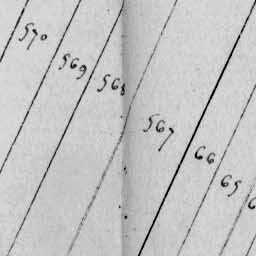 570
569
568
567
66
65